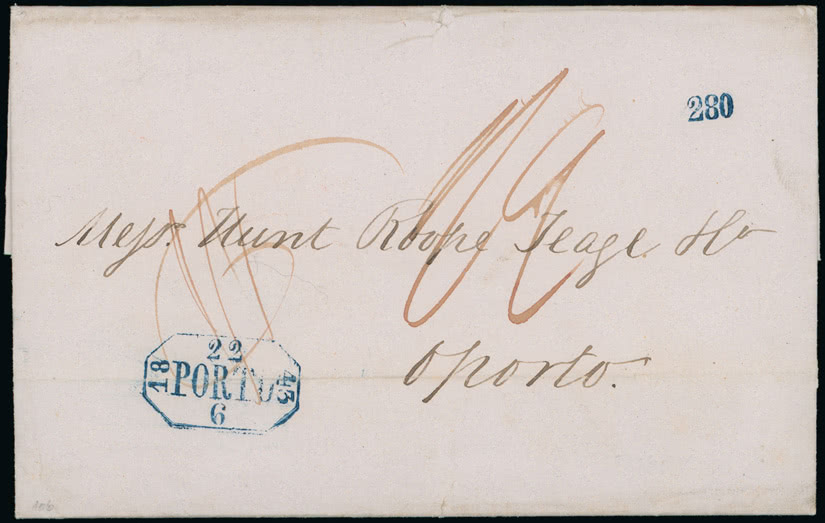 280
Messrs. Hunt Roope Teage & Co
Oporto.
22
18 PORTO 43
6